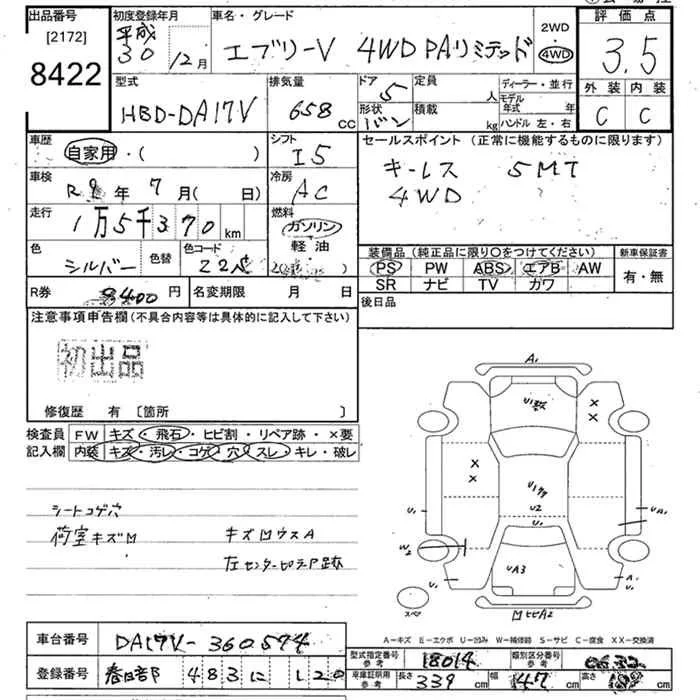 出品番号
[2172]
8422
初度登録年月
平成
30 12月
車名・グレード
エブリーV 4WD PAリミテッド
2WD
・
4WD
評価点
3.5
外装 内装
C C
型式
HBD-DA17V
排気量
658 cc
ドア 5
形状 バン
定員 人
積載 kg
ディーラー・並行
モデル年式 年
ハンドル 左・右
車歴
自家用・( )
シフト
I5
セールスポイント (正常に機能するものに限ります)
キーレス 5MT
4WD
車検
年 7月( 日)
冷房
AC
走行
1万5千370 km
燃料
ガソリン
軽油
色
シルバー
色替
色コード
装備品 (純正品に限り○をつけてください)
PS PW ABS エアB AW
SR ナビ TV カワ
新車保証書
有・無
R券 8400円
名変期限 月 日
後日品
注意事項申告欄 (不具合内容等は具体的に記入して下さい)
初出品
修復歴 有 〔箇所 〕
検査員
記入欄
FW キズ・飛石・ヒビ割・リペア跡・×要
内装 キズ・汚レ・コゲ・穴・スレ・キレ・破レ
シートコゲ穴
荷室キズM
キズMウスA
A1
U1
U2
U1
UA3
W2
スペア
A-キズ E-エクボ U-凹み W-補修跡 S-サビ C-腐食 XX-交換済
車台番号 DA17V-360574
登録番号 春日部 483 に 120
型式指定番号
参考
18014
類別区分番号
参考
車庫証明用
参考
長さ 339 cm
幅 147 cm
高さ cm